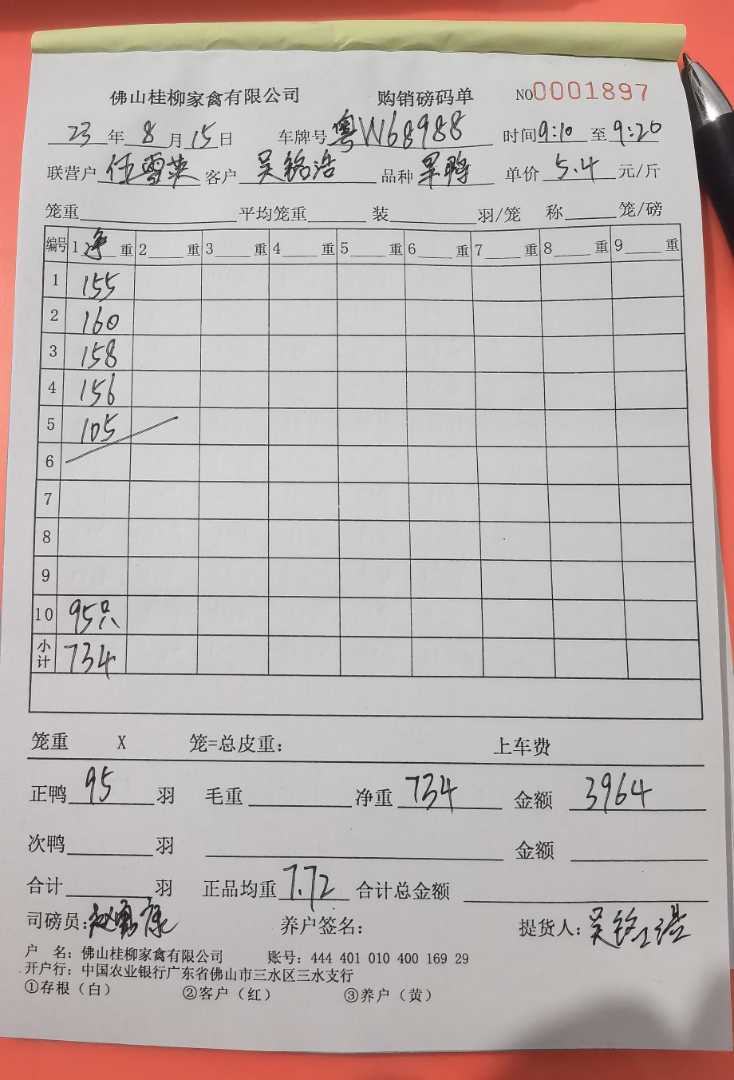 佛山桂柳家禽有限公司 购销磅码单 NO0001897
23年8月15日 车牌号粤W68988 时间9:10至9:20
联营户 伍雪英 客户 吴铭浩 品种 单价 5.4 元/斤
笼重 平均笼重 装 羽/笼 称 笼/磅
编号 1净重 2 重 3 重 4 重 5 重 6 重 7 重 8 重 9 重
1 155
2 160
3 158
4 156
5 105
6
7
8
9
10 95只
小计 734
笼重 X 笼=总皮重: 上车费
正鸭 95 羽 毛重 净重 734 金额 3964
次鸭 羽 金额
合计 羽 正品均重 7.72 合计总金额
司磅员: 养户签名: 提货人: 吴铭浩
户 名: 佛山桂柳家禽有限公司 账号: 444 401 010 400 169 29
开户行: 中国农业银行广东省佛山市三水区三水支行
①存根(白) ②客户(红) ③养户(黄)